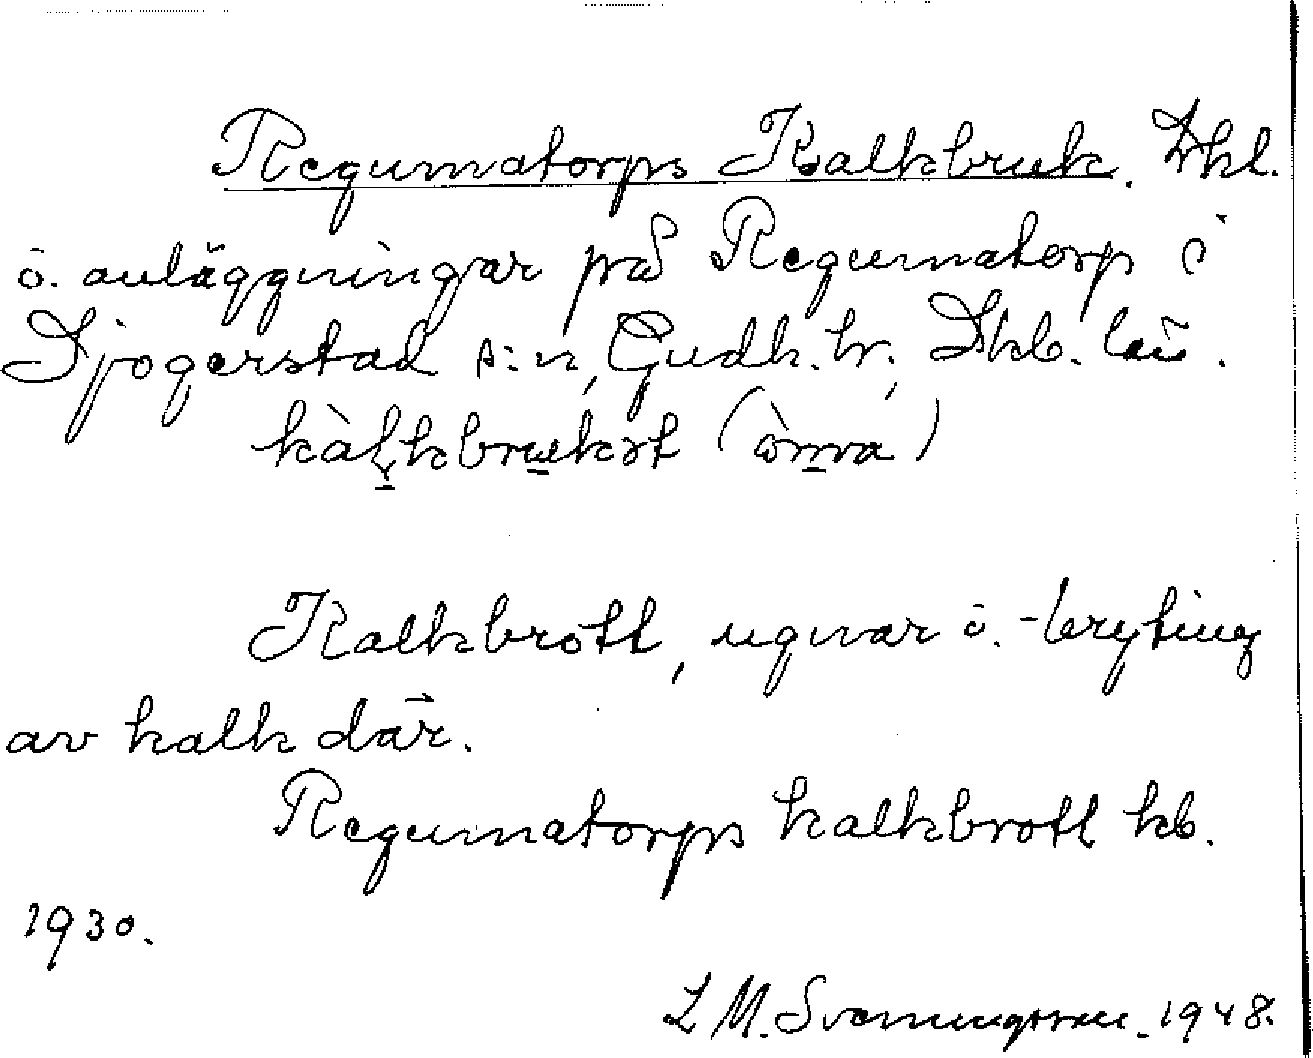 Regumatorps Kalkbruk. Lkl.
o. anläggningar på Regumatorp i
Sjogerstad s:n, Gudh. hr, Skb. län.
kàḷkbrukət (ò̱mra)
Kalkbrott, ugnar o. -bryting
av kalk där.
Regumatorps kalkbrott kb.
1930.
L M. Svenningsson. 1948.